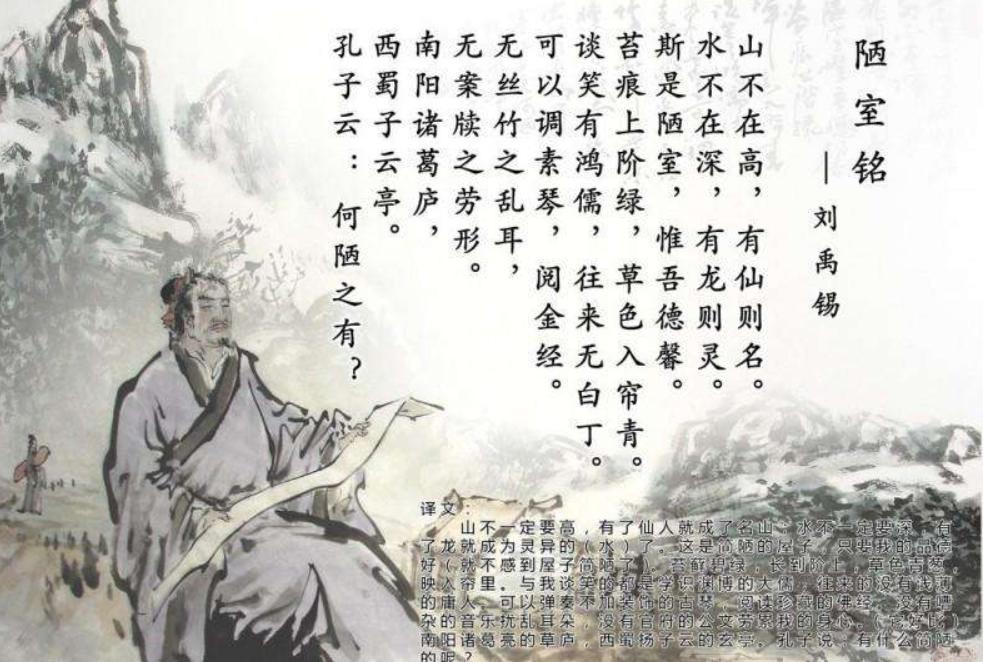 陋室铭
—刘禹锡
山不在高，有仙则名。
水不在深，有龙则灵。
斯是陋室，惟吾德馨。
苔痕上阶绿，草色入帘青。
谈笑有鸿儒，往来无白丁。
可以调素琴，阅金经。
无丝竹之乱耳，
无案牍之劳形。
南阳诸葛庐，
西蜀子云亭。
孔子云：何陋之有？
译文：
山不一定要高，有了仙人就成了名山。水不一定要深，有
了龙就成为灵异的（水）了。这是简陋的屋子，只要我的品德
好（就不感到屋子简陋了）。苔藓碧绿，长到阶上，草色青葱，
映入帘里。与我谈笑的都是学识渊博的大儒，往来的没有浅薄
的唐人。可以弹奏不加装饰的古琴，阅读珍藏的佛经。没有嘈
杂的音乐扰乱耳朵，没有官府的公文劳累我的身心。（它好比）
南阳诸葛亮的草庐，西蜀扬子云的玄亭。孔子说：有什么简陋
的呢？